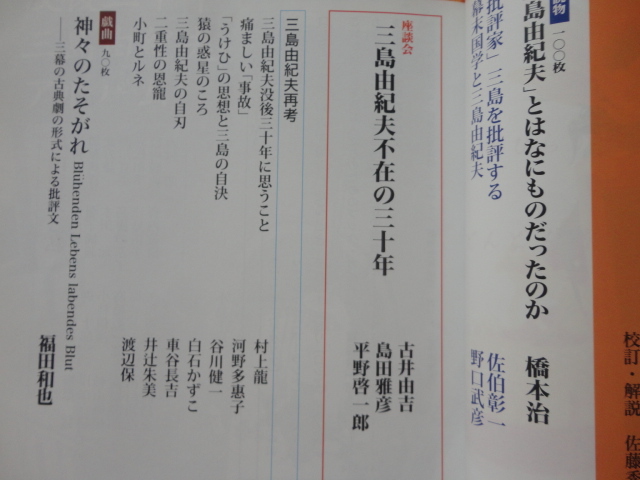 校訂・解説 佐藤秀
読物 一〇〇枚
島由紀夫」とはなにものだったのか 橋本治
批評家」三島を批評する 佐伯彰一
幕末国学と三島由紀夫 野口武彦
座談会
三島由紀夫不在の三十年
古井由吉
島田雅彦
平野啓一郎
三島由紀夫再考
三島由紀夫没後三十年に思うこと 村上龍
痛ましい「事故」 河野多惠子
「うけひ」の思想と三島の自決 谷川健一
猿の惑星のころ 白石かずこ
三島由紀夫の自刃 車谷長吉
二重性の恩寵 井辻朱美
小町とルネ 渡辺保
戯曲 九〇枚
神々のたそがれ Blühenden Lebens labendes Blut 福田和也
——三幕の古典劇の形式による批評文